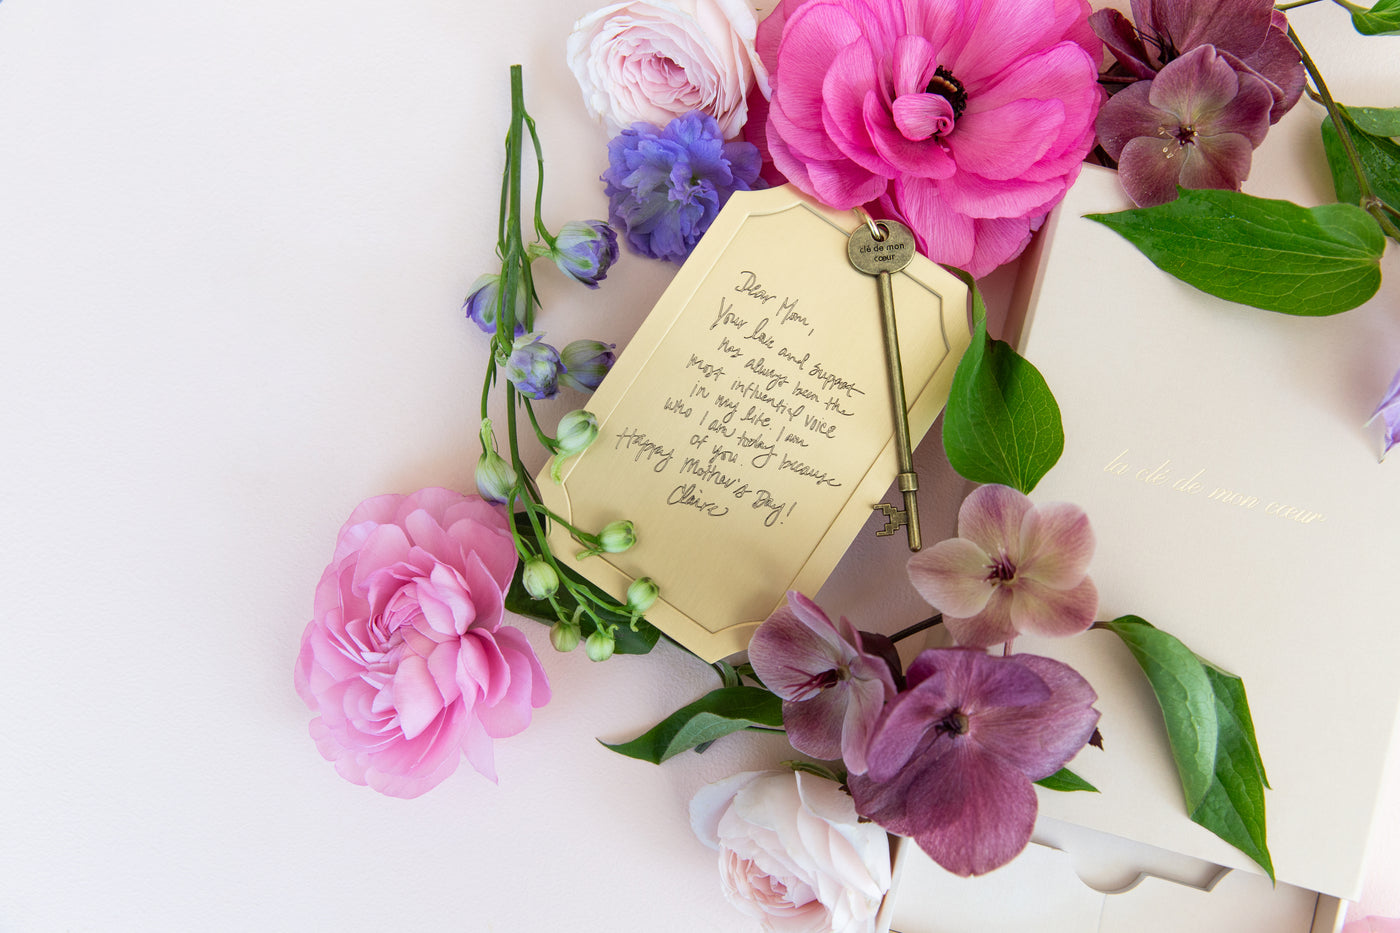 clé de mon
cœur
Dear Mom,
Your love and support
has always been the
most influential voice
in my life. I am
who I am today because
of you.
Happy Mother's Day!
Claire
la clé de mon cœur